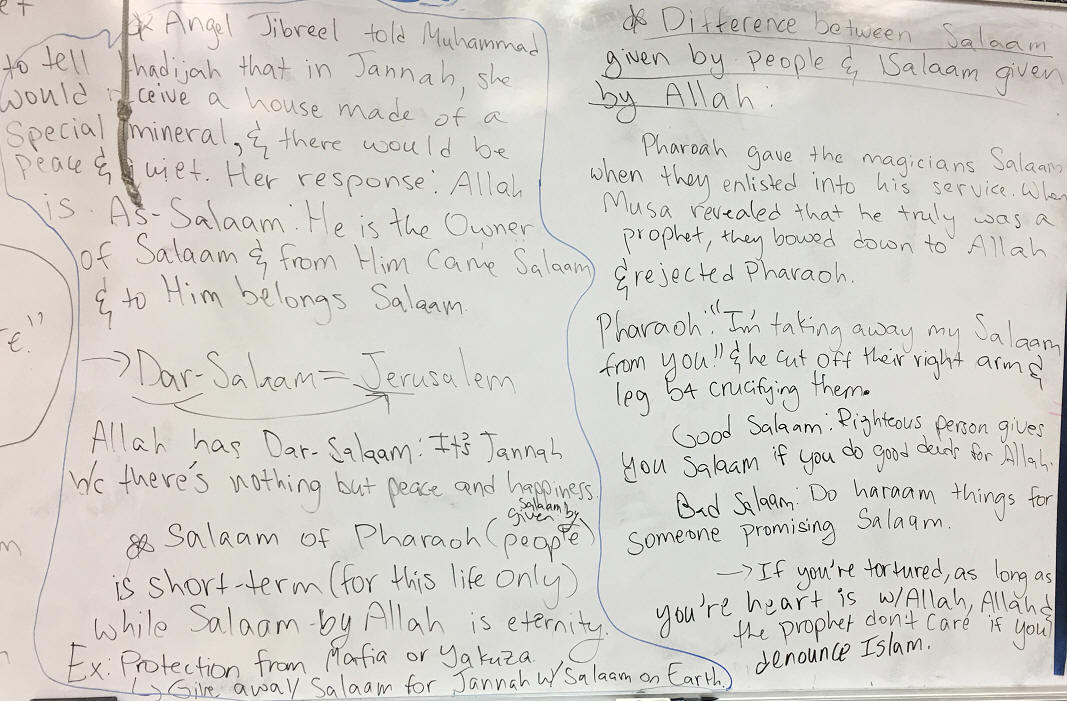 et
* Angel Jibreel told Muhammad
to tell hadijah that in Jannah, she
would ceive a house made of a
special mineral, & there would be
peace & uiet. Her response: Allah
is As-Salaam: He is the Owner
of Salaam & from Him came Salaam
& to Him belongs Salaam.
→ Dar-Salaam = Jerusalem
Allah has Dar-Salaam: It's Jannah
b/c there's nothing but peace and happiness.
* Salaam of Pharaoh (Salaam given by people)
is short-term (for this life only)
while Salaam by Allah is eternity.
Ex: Protection from Mafia or Yakuza.
↳ Give away Salaam for Jannah w/ Salaam on Earth.
* Difference between Salaam
given by people & Salaam given
by Allah:
Pharoah gave the magicians Salaam
when they enlisted into his service. When
Musa revealed that he truly was a
prophet, they bowed down to Allah
& rejected Pharaoh.
Pharaoh: "I'm taking away my Salaam
from you!" & he cut off their right arm &
leg b4 crucifying them.
Good Salaam: Righteous person gives
you Salaam if you do good deeds for Allah.
Bad Salaam: Do haraam things for
someone promising Salaam.
→ If you're tortured, as long as
you're heart is w/ Allah, Allah &
the prophet don't care if you
denounce Islam.
€."
m